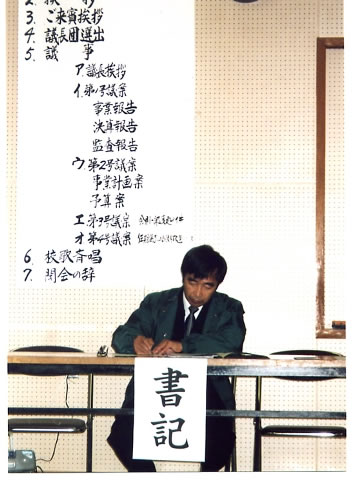 2. 挨拶
3. ご来賓挨拶
4. 議長団選出
5. 議事
ア.議長挨拶
イ.第1号議案
事業報告
決算報告
監査報告
ウ.第2号議案
事業計画案
予算案
エ.第3号議案
オ.第4号議案
6. 校歌斉唱
7. 閉会の辞
書記